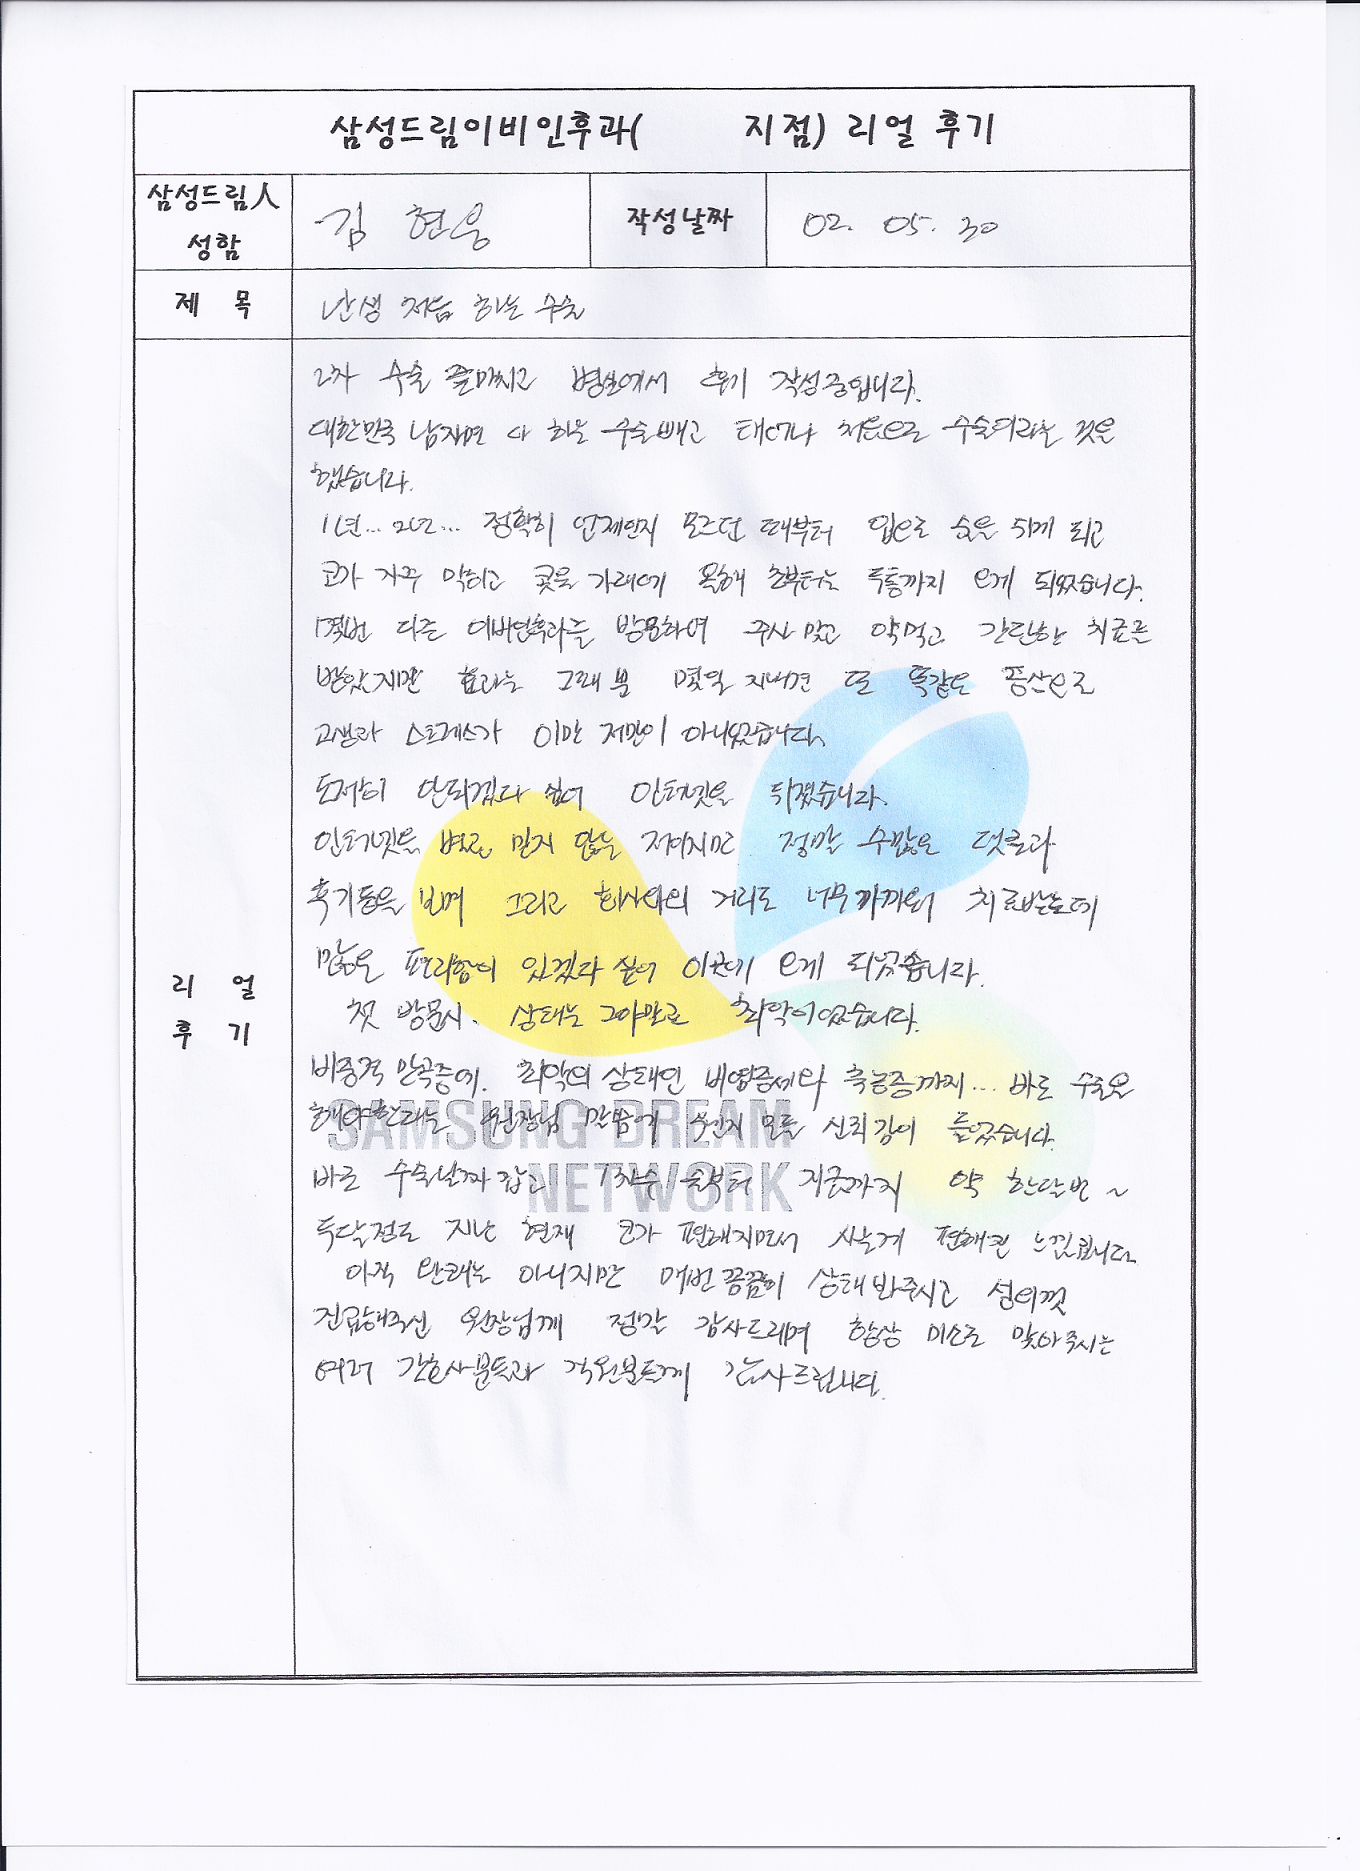 삼성드림이비인후과(     지점) 리얼 후기
삼성드림人
성함
김 현웅
작성날짜
02. 05. 30
제 목
난생 처음 하는 수술
리 얼
후 기
2차 수술 끝마치고 병실에서 후기 작성중입니다.
대한민국 남자면 다 하는 수술빼고 태어나 처음으로 수술이라는 것을
했습니다.
1년... 2년... 정확히 언제인지 모르던 때부터 입으로 숨을 쉬게 되고
코가 자꾸 막히고 콧물 가래에 올해 초부터는 두통까지 오게 되었습니다.
몇번 다른 이비인후과를 방문하여 주사 맞고 약먹고 간단한 치료를
받았지만 효과는 그때 뿐 몇일 지나면 또 똑같은 증상으로
고생과 스트레스가 이만 저만이 아니었습니다.
도저히 안되겠다 싶어 인터넷을 뒤졌습니다.
인터넷을 별로 믿지 않는 저이지만 정말 수많은 덧글과
후기들을 보며 그리고 회사와의 거리도 너무가까워 치료받는데
많은 편리함이 있겠다 싶어 이곳에 오게 되었습니다.
첫 방문시. 상태는 그야말로 최악이었습니다.
비중격 만곡증에. 최악의 상태인 비염증세와 축농증까지... 바로 수술을
해야한다는 원장님 말씀에 왠지 모를 신뢰감이 들었습니다.
바로 수술날짜 잡고 1차수술부터 지금까지 약 한달반 ~
두달정도 지난 현재 코가 편해지면서 사는게 편해진 느낌입니다.
아직 완쾌는 아니지만 매번 꼼꼼히 상태 봐주시고 성의껏
진료해주신 원장님께 정말 감사드리며 항상 미소로 맞아주시는
여러 간호사분들과 직원분들께 감사드립니다.
SAMSUNG DREAM
NETWORK